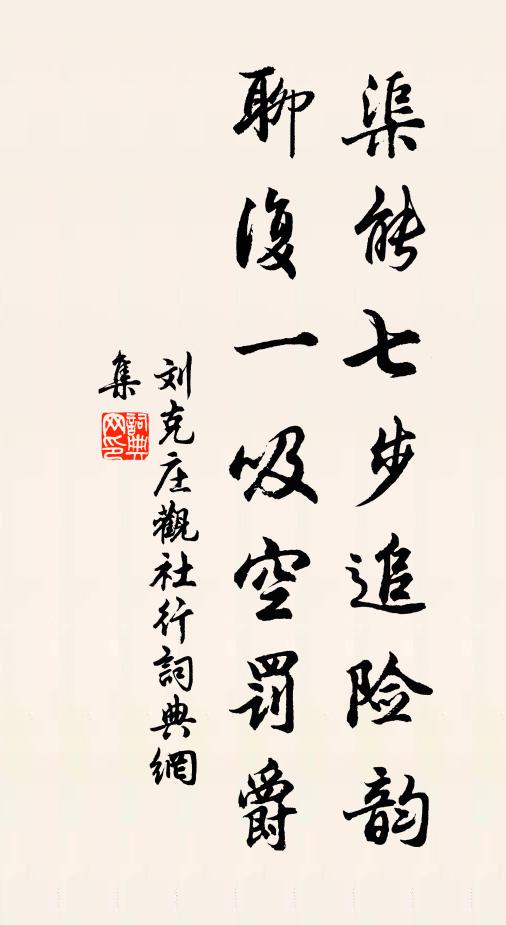 渠能七步追险韵
聊復一吸空罰爵
刘克庄觀社行詞典網
集
詞典网印